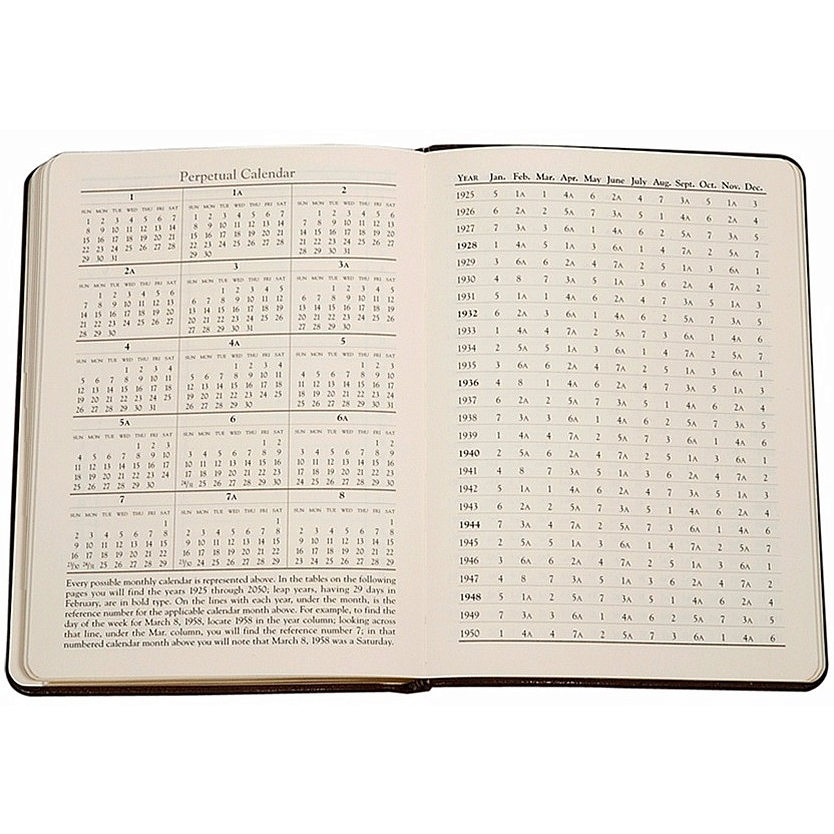 Perpetual Calendar
1 1A 2
SUN MON TUE WED THU FRI SAT SUN MON TUE WED THU FRI SAT SUN MON TUE WED THU FRI SAT
1 2 3 4 5 6 7 1 2 3 4 5 6 7 1 2 3 4 5 6
8 9 10 11 12 13 14 8 9 10 11 12 13 14 7 8 9 10 11 12 13
15 16 17 18 19 20 21 15 16 17 18 19 20 21 14 15 16 17 18 19 20
22 23 24 25 26 27 28 22 23 24 25 26 27 28 21 22 23 24 25 26 27
29 30 31 29 30 28 29 30 31
2A 3 3A
SUN MON TUE WED THU FRI SAT SUN MON TUE WED THU FRI SAT SUN MON TUE WED THU FRI SAT
1 2 3 4 5 6 1 2 3 4 5 1 2 3 4 5
7 8 9 10 11 12 13 6 7 8 9 10 11 12 6 7 8 9 10 11 12
14 15 16 17 18 19 20 13 14 15 16 17 18 19 13 14 15 16 17 18 19
21 22 23 24 25 26 27 20 21 22 23 24 25 26 20 21 22 23 24 25 26
28 29 30 27 28 29 30 31 27 28 29 30
4 4A 5
SUN MON TUE WED THU FRI SAT SUN MON TUE WED THU FRI SAT SUN MON TUE WED THU FRI SAT
1 2 3 4 1 2 3 4 1 2 3
5 6 7 8 9 10 11 5 6 7 8 9 10 11 4 5 6 7 8 9 10
12 13 14 15 16 17 18 12 13 14 15 16 17 18 11 12 13 14 15 16 17
19 20 21 22 23 24 25 19 20 21 22 23 24 25 18 19 20 21 22 23 24
26 27 28 29 30 31 26 27 28 29 30 25 26 27 28 29 30 31
5A 6 6A
SUN MON TUE WED THU FRI SAT SUN MON TUE WED THU FRI SAT SUN MON TUE WED THU FRI SAT
1 2 3 1 2 1 2
4 5 6 7 8 9 10 3 4 5 6 7 8 9 3 4 5 6 7 8 9
11 12 13 14 15 16 17 10 11 12 13 14 15 16 10 11 12 13 14 15 16
18 19 20 21 22 23 24 17 18 19 20 21 22 23 17 18 19 20 21 22 23
25 26 27 28 29 30 24/31 25 26 27 28 29 30 24 25 26 27 28 29 30
7 7A 8
SUN MON TUE WED THU FRI SAT SUN MON TUE WED THU FRI SAT SUN MON TUE WED THU FRI SAT
1 1 1
2 3 4 5 6 7 8 2 3 4 5 6 7 8 2 3 4 5 6 7 8
9 10 11 12 13 14 15 9 10 11 12 13 14 15 9 10 11 12 13 14 15
16 17 18 19 20 21 22 16 17 18 19 20 21 22 16 17 18 19 20 21 22
23/30 24/31 25 26 27 28 29 23/30 24 25 26 27 28 29 23 24 25 26 27 28
Every possible monthly calendar is represented above. In the tables on the following
pages you will find the years 1925 through 2050; leap years, having 29 days in
February, are in bold type. On the lines with each year, under the month, is the
reference number for the applicable calendar month above. For example, to find the
day of the week for March 8, 1958, locate 1958 in the year column; looking across
that line, under the Mar. column, you will find the reference number 7; in that
numbered calendar month above you will note that March 8, 1958 was a Saturday.
YEAR Jan. Feb. Mar. Apr. May June July Aug. Sept. Oct. Nov. Dec.
1925 5 1A 1 4A 6 2A 4 7 3A 5 1A 3
1926 6 2A 2 5A 7 3A 5 1 4A 6 2A 4
1927 7 3A 3 6A 1 4A 6 2 5A 7 3A 5
1928 1 4A 5 1A 3 6A 1 4 7A 2 5A 7
1929 3 6A 6 2A 4 7A 2 5 1A 3 6A 1
1930 4 8 7 3A 5 1A 3 6 2A 4 7A 2
1931 5 1A 1 4A 6 2A 4 7 3A 5 1A 3
1932 6 2A 3 6A 1 4A 6 2 5A 7 3A 5
1933 1 4A 4 7A 2 5A 7 3 6A 1 4A 6
1934 2 5A 5 1A 3 6A 1 4 7A 2 5A 7
1935 3 6A 6 2A 4 7A 2 5 1A 3 6A 1
1936 4 8 1 4A 6 2A 4 7 3A 5 1A 3
1937 6 2A 2 5A 7 3A 5 1 4A 6 2A 4
1938 7 3A 3 6A 1 4A 6 2 5A 7 3A 5
1939 1 4A 4 7A 2 5A 7 3 6A 1 4A 6
1940 2 5A 6 2A 4 7A 2 5 1A 3 6A 1
1941 4 8 7 3A 5 1A 3 6 2A 4 7A 2
1942 5 1A 1 4A 6 2A 4 7 3A 5 1A 3
1943 6 2A 2 5A 7 3A 5 1 4A 6 2A 4
1944 7 3A 4 7A 2 5A 7 3 6A 1 4A 6
1945 2 5A 5 1A 3 6A 1 4 7A 2 5A 7
1946 3 6A 6 2A 4 7A 2 5 1A 3 6A 1
1947 4 8 7 3A 5 1A 3 6 2A 4 7A 2
1948 5 1A 2 5A 7 3A 5 1 4A 6 2A 4
1949 7 3A 3 6A 1 4A 6 2 5A 7 3A 5
1950 1 4A 4 7A 2 5A 7 3 6A 1 4A 6